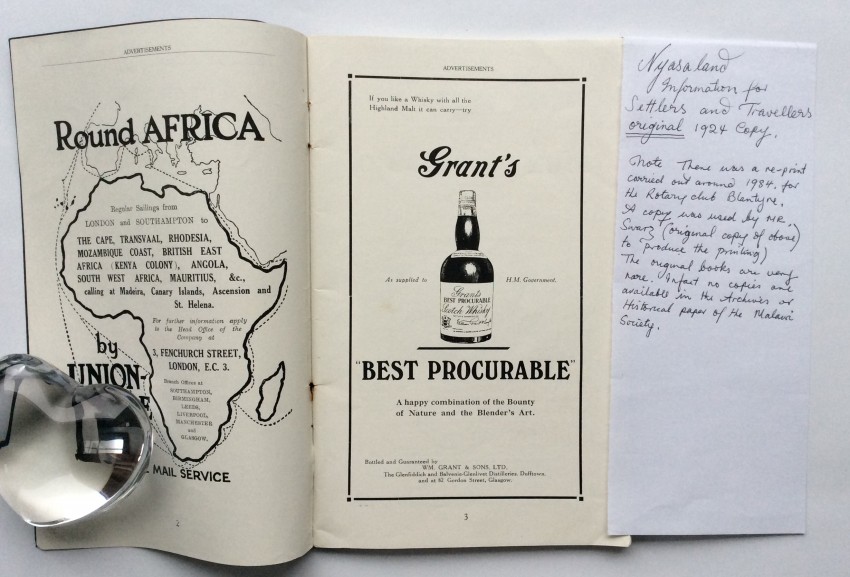 ADVERTISEMENTS
Round AFRICA
Regular Sailings from
LONDON and SOUTHAMPTON to
THE CAPE, TRANSVAAL, RHODESIA,
MOZAMBIQUE COAST, BRITISH EAST
AFRICA (KENYA COLONY), ANGOLA,
SOUTH WEST AFRICA, MAURITIUS, &c.,
calling at Madeira, Canary Islands, Ascension and
St. Helena.
For further information apply
to the Head Office of the
Company at
3, FENCHURCH STREET,
LONDON, E.C. 3.
Branch Offices at
SOUTHAMPTON,
BIRMINGHAM,
LEEDS,
LIVERPOOL,
MANCHESTER
and
GLASGOW.
by
UNION-
E
MAIL SERVICE
2
ADVERTISEMENTS
If you like a Whisky with all the
Highland Malt it can carry—try
Grant's
As supplied to
H.M. Government.
Grant's
BEST PROCURABLE
Scotch Whisky
"BEST PROCURABLE"
A happy combination of the Bounty
of Nature and the Blender's Art.
Bottled and Guaranteed by
WM. GRANT & SONS, LTD.
The Glenfiddich and Balvenie-Glenlivet Distilleries, Dufftown,
and at 82 Gordon Street, Glasgow.
3
Nyasaland
Information for
Settlers and Travellers
original 1924 Copy.
Note There was a re-print
carried out around 1984. for
the Rotary club Blantyre.
A copy was used by MR.
Swarz (original copy of above)
to produce the printing)
The original books are very
rare. Infact no copies are
available in the Archives or
Historical paper of the Malawi
Society.